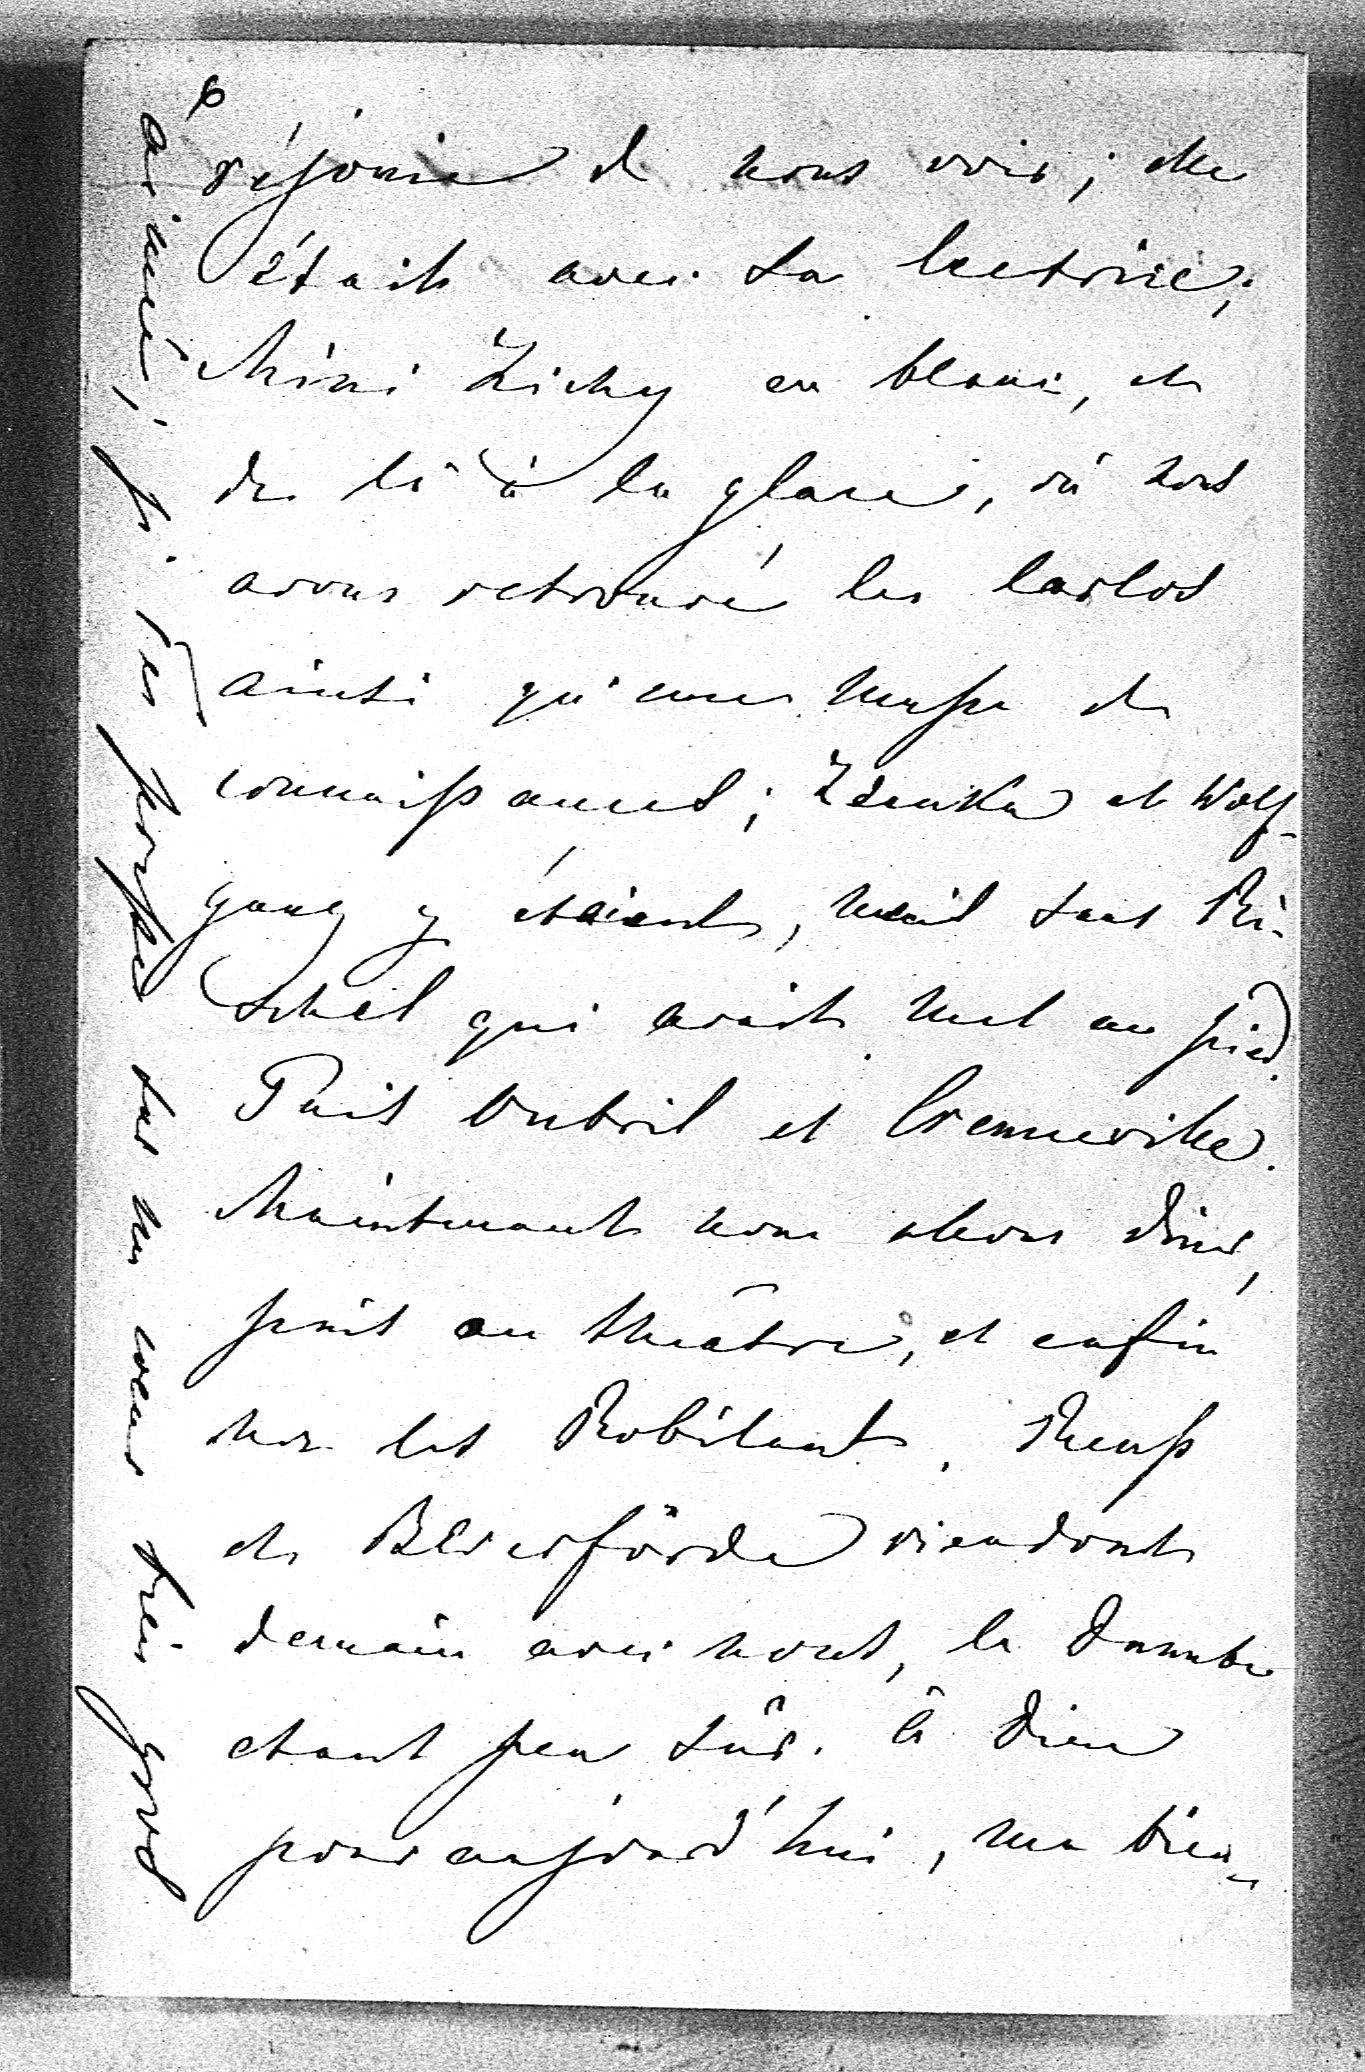 réjouie de nous voir; elle
était avec sa lectrice;
Mimi Zichy en blanc, et
de là à la glace, où nous
avons retrouvé les Carlos
ainsi qu'une masse de
connaissances; Zdenka et Wolf-
gang y étaient, mais sans Ri-
schel qui avait mal au pied.
Puis Oubril et Crenneville.
Maintenant nous allons dîner,
puis au théâtre, et enfin
chez les Robilant. Reuss
et Beverförde viendront
demain avec nous, le Danube
étant peu sûr. à Dieu
pour aujourd'hui, ma bien-
aimée; je Tes presse sur mon coeur. Treu